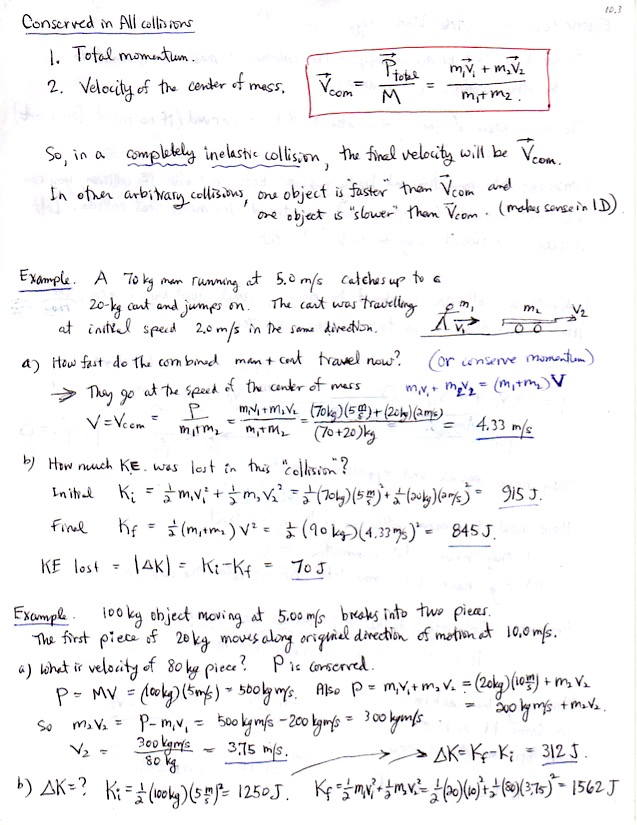 10.3
Conserved in All collisions
1. Total momentum.
2. Velocity of the center of mass. V⃗com = P⃗total / M = (m₁V⃗₁ + m₂V⃗₂) / (m₁+m₂).
So, in a completely inelastic collision, the final velocity will be V⃗com.
In other arbitrary collisions, one object is "faster" than V⃗com and
one object is "slower" than V⃗com. (makes sense in 1D)
Example. A 70 kg man running at 5.0 m/s catches up to a
20-kg cart and jumps on. The cart was travelling
at initial speed 2.0 m/s in the same direction. m₁ V⃗₁ m₂ V⃗₂
a) How fast do the combined man + cart travel now? (or conserve momentum)
→ They go at the speed of the center of mass m₁V₁ + m₂V₂ = (m₁+m₂)V
V = Vcom = P / (m₁+m₂) = (m₁V₁+m₂V₂) / (m₁+m₂) = ((70kg)(5 m/s) + (20kg)(2m/s)) / ((70+20)kg) = 4.33 m/s
b) How much KE. was lost in this "collision"?
Initial Ki = ½m₁v₁² + ½m₂v₂² = ½(70kg)(5 m/s)² + ½(20kg)(2m/s)² = 915 J.
Final Kf = ½(m₁+m₂)V² = ½(90 kg)(4.33 m/s)² = 845 J.
KE lost = |ΔK| = Ki-Kf = 70 J.
Example. 100 kg object moving at 5.00 m/s breaks into two pieces.
The first piece of 20kg moves along original direction of motion at 10.0 m/s.
a) What is velocity of 80 kg piece? P is conserved.
P = MV = (100kg)(5m/s) = 500 kg m/s. Also P = m₁V₁+m₂V₂ = (20kg)(10 m/s) + m₂V₂
= 200 kg m/s + m₂V₂.
So m₂V₂ = P-m₁V₁ = 500 kgm/s - 200 kgm/s = 300 kgm/s.
V₂ = 300 kgm/s / 80 kg = 3.75 m/s. → ΔK = Kf-Ki = 312 J.
b) ΔK=? Ki = ½(100kg)(5 m/s)² = 1250 J. Kf = ½m₁v₁² + ½m₂v₂² = ½(20)(10)² + ½(80)(3.75)² = 1562 J